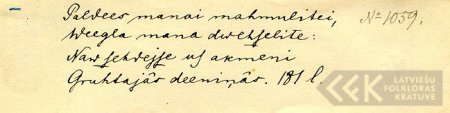 Paldees manai mahmulitei, № 1059.
Weegla mana dwehselite:
Naw sehdejse us akmeni
Gruhtajâs deeniņâs. 181 l.
LATVIEŠU
FOLKLORAS
KRĀTUVE